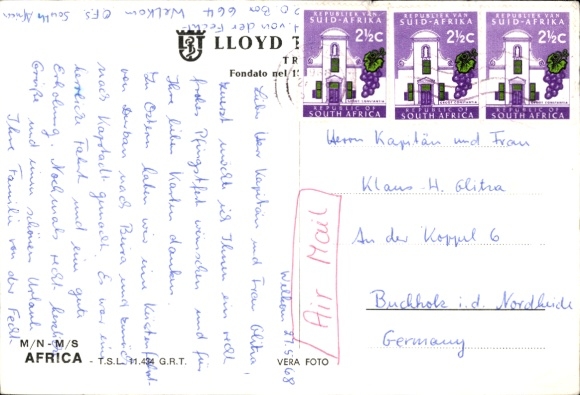 H. von der Fecht
P.O Box 664 Welkom OFS South Africa
LLOYD T
TR
Fondato nel 1
Welkom 27.5.68
Lieber Herr Kapitän und Frau Olitza,
zunächst möchte ich Ihnen ein recht
frohes Pfingstfest wünschen und für
Ihre lieben Karten danken.
Zu Ostern haben wir eine Küstenfahrt
von Durban nach Beira und zurück
nach Kapstadt gemacht. Es war eine
herrliche Fahrt und eine gute
Erholung. Nochmals recht herzliche
Grüße und einen schönen Urlaub
Ihre Familie von der Fecht.
M/N - M/S
AFRICA - T.S.L. 11.434 G.R.T.
VERA FOTO
REPUBLIEK VAN
SUID-AFRIKA
2½C
GROOT CONSTANTIA
REPUBLIC OF
SOUTH AFRICA
REPUBLIEK VAN
SUID-AFRIKA
2½C
GROOT CONSTANTIA
REPUBLIC OF
SOUTH AFRICA
REPUBLIEK VAN
SUID-AFRIKA
2½C
GROOT CONSTANTIA
REPUBLIC OF
SOUTH AFRICA
Air Mail
Herrn Kapitän und Frau
Klaus-H. Olitza
An der Koppel 6
Buchholz i.d. Nordheide
Germany